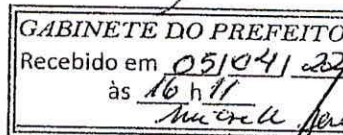 GABINETE DO PREFEITO
Recebido em 05/04/202
às 16 h 11